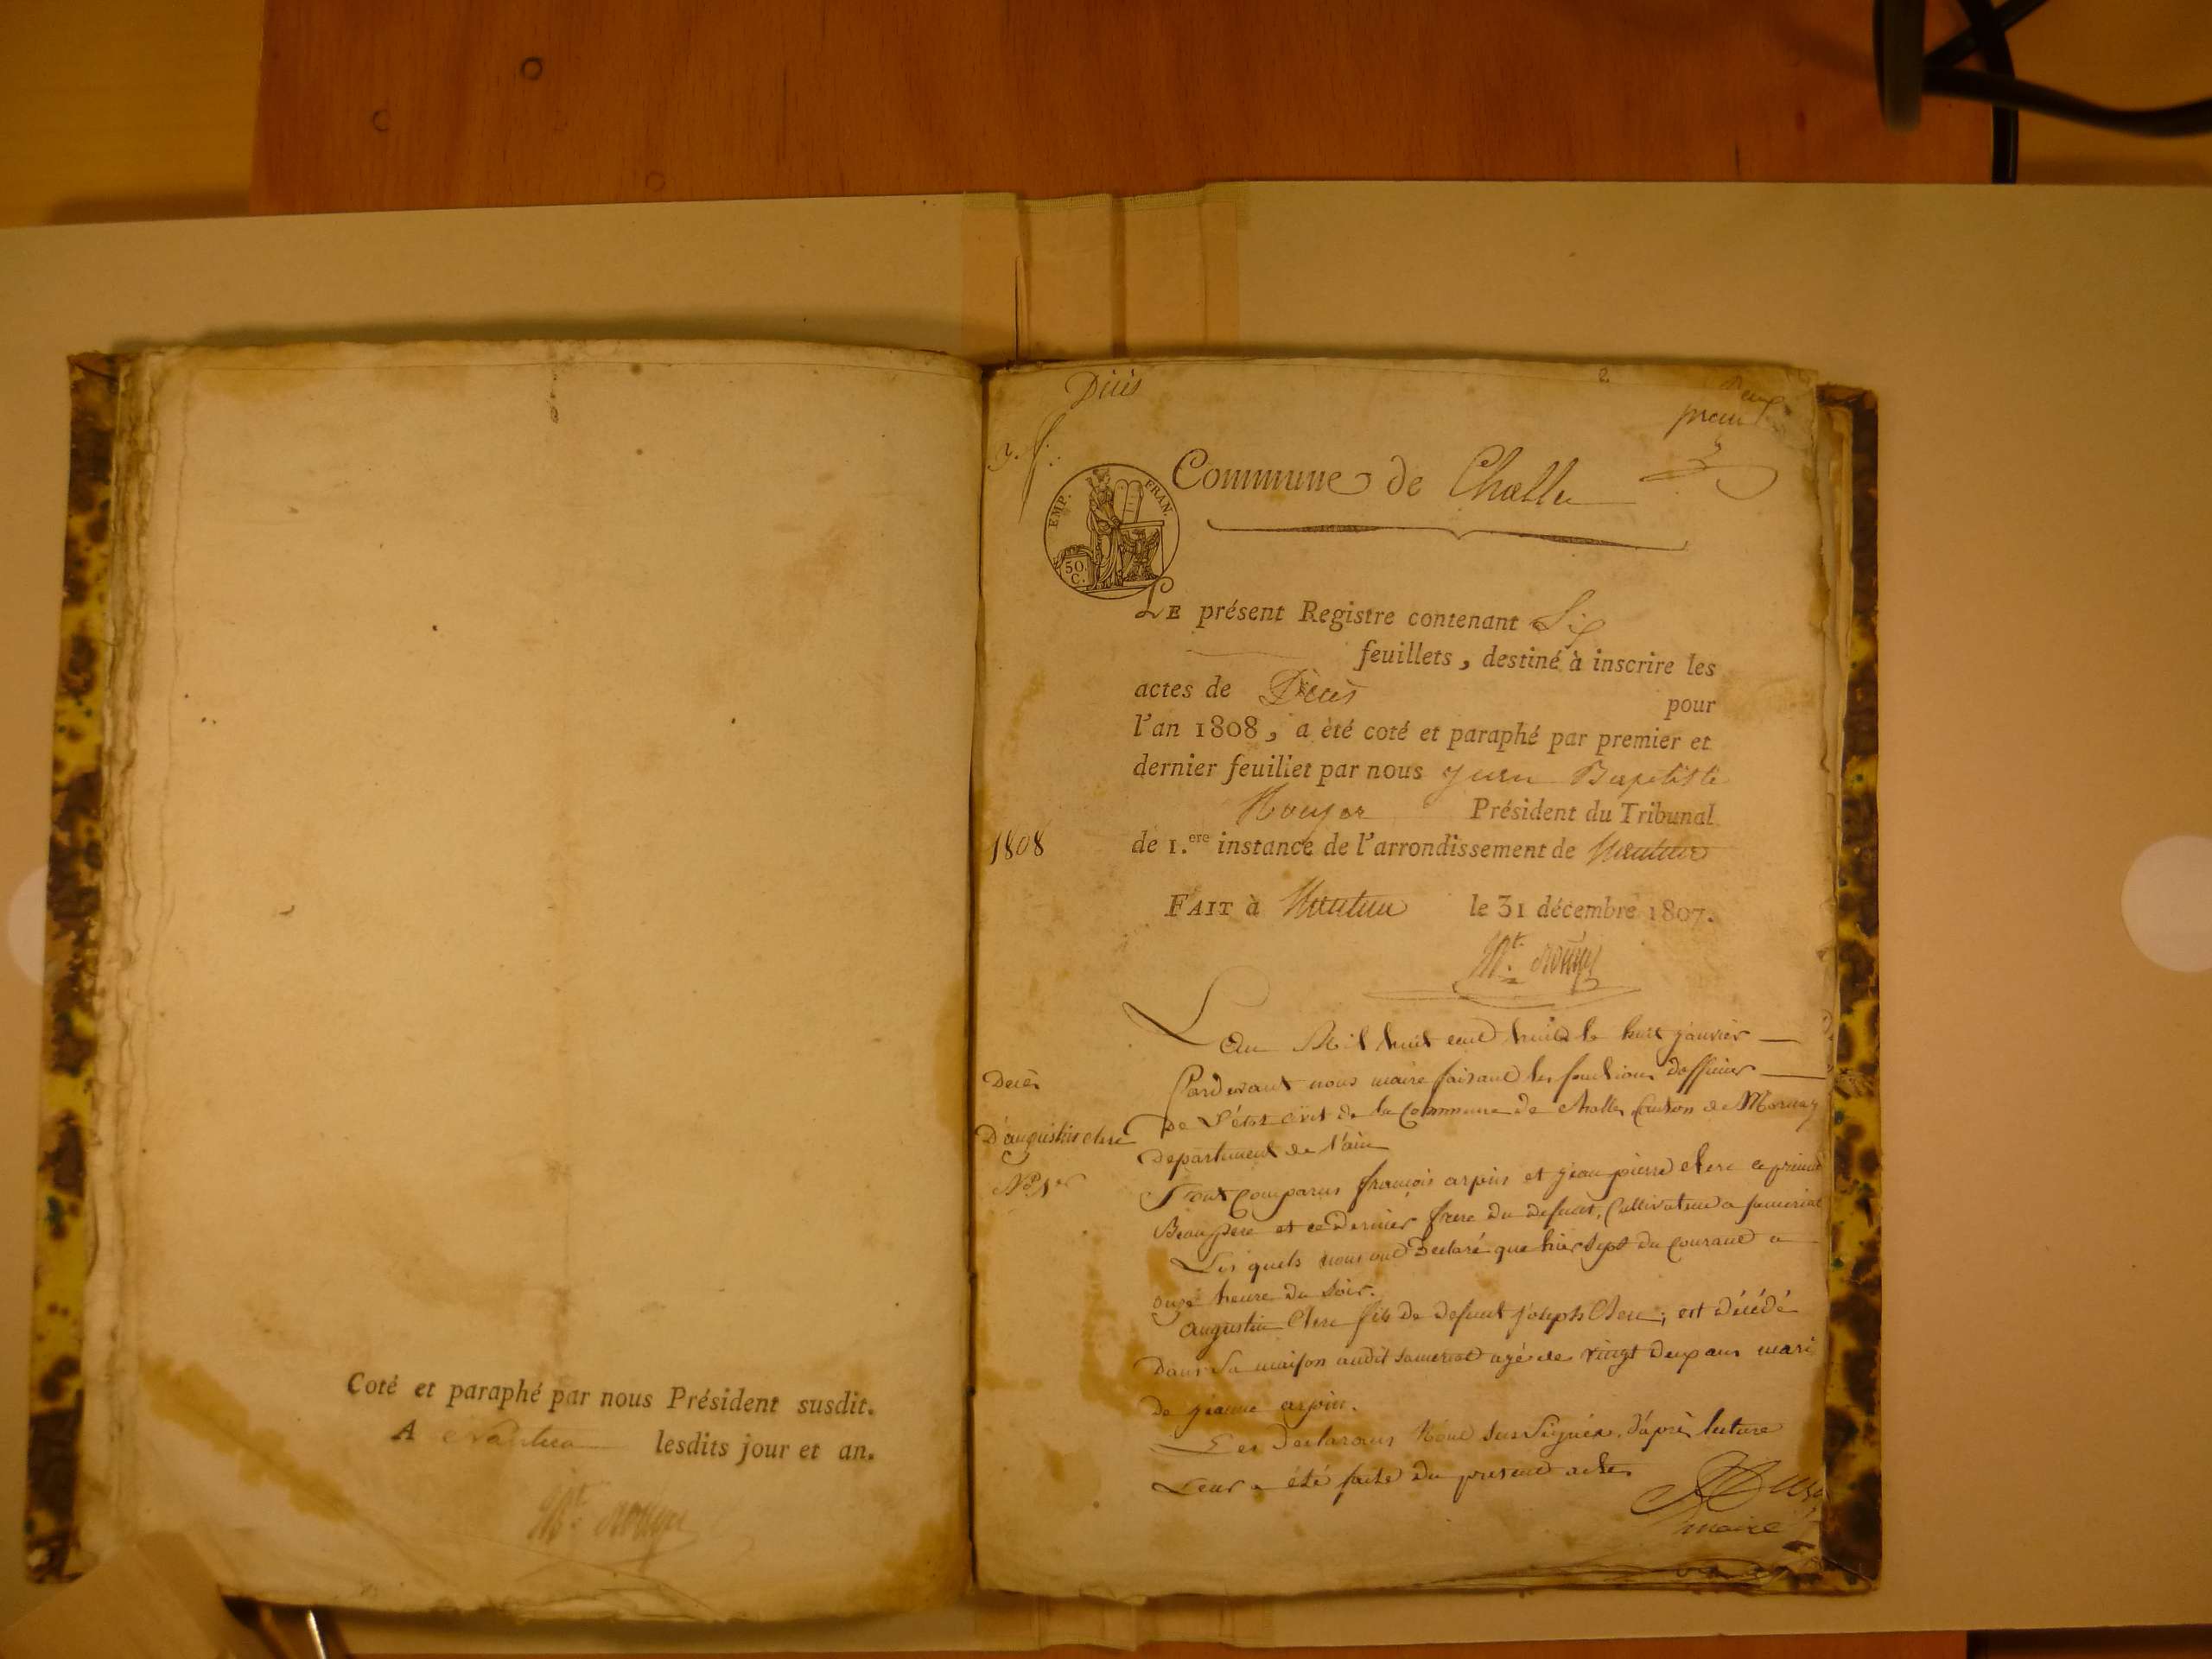 Coté et paraphé par nous Président susdit.
A Nantua lesdits jour et an.
Décès
Commune de Challe
EMP. FRAN.
50 C.
LE présent Registre contenant Six
feuillets, destiné à inscrire les
actes de Décès pour
l'an 1808, a été coté et paraphé par premier et
dernier feuillet par nous Jean Baptiste
Rouyer Président du Tribunal
1808
de 1.ere instance de l'arrondissement de Nantua
FAIT à Nantua le 31 décembre 1807.
Bte. Rouyer
L'an Mil huit cent huit le huit janvier
Decès
D'augustin clerc
No 1er
Pardevant nous maire faisant les fonctions d'officier
De L'état civil de la Commune de challes Canton de Mornay
Departement de l'ain
Sont Comparus françois arpin et jean pierre clerc ce premier
Beau pere et ce Dernier frere du defunt, Cultivateur a
Les quels nous ont Declaré que hier sept du Courant a
onze heure du Soir.
augustin Clerc fils de defunt joseph Clerc, est décédé
Dans Sa maison audit agé de vingt deux ans mari
de jeanne arpin.
Les Declarans N'ont Sus Signés, d'après lecture
Leur a été faite du present acte.
maire